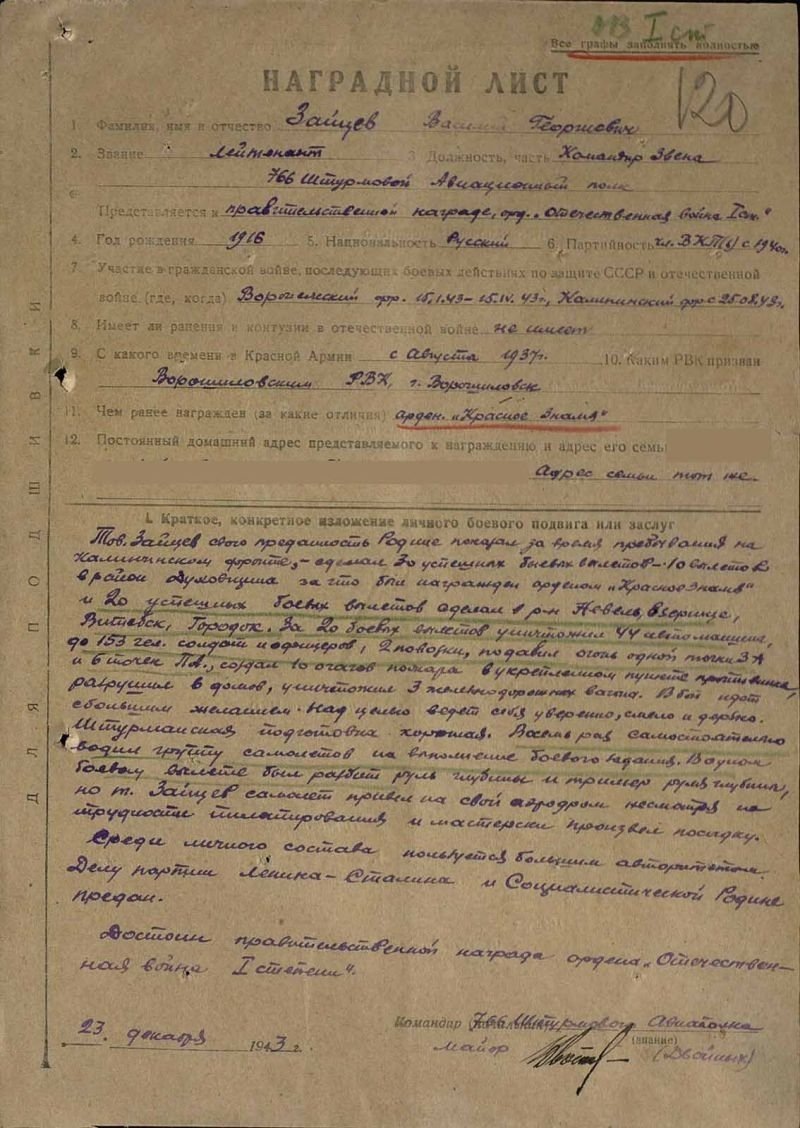 ОВ I ст
Все графы заполнять полностью
НАГРАДНОЙ ЛИСТ
120
1. Фамилия, имя и отчество Зайцев Василий Георгиевич
2. Звание лейтенант 3 Должность, часть Командир Звена
766 Штурмовой Авиационный полк
Представляется к правительственной награде, орд. „Отечественная война I ст."
4. Год рождения 1916 5. Национальность Русский 6. Партийность чл. ВКП(б) с 1940г.
7. Участие в гражданской войне, последующих боевых действиях по защите СССР и отечественной
войне (где, когда) Воронежский фр. 15.1.43 – 15.IV.43г., Калининский фр с 25.08.43г.
8. Имеет ли ранения и контузии в отечественной войне не имеет
9. С какого времени в Красной Армии с Августа 1937г. 10. Каким РВК призван
Ворошиловским РВК, г. Ворошиловск
11. Чем ранее награжден (за какие отличия) орден. „Красное Знамя"
12. Постоянный домашний адрес представляемого к награждению и адрес его семьи
Адрес семьи тот же.
I. Краткое, конкретное изложение личного боевого подвига или заслуг
Тов. Зайцев свою преданность Родине показал за время пребывания на
Калининском фронте, – сделал 30 успешных боевых вылетов – 10 вылетов
в район Духовщина за что был награжден орденом „Красное Знамя"
и 20 успешных боевых вылетов сделал в р-н Невель, Езерище,
Витебск, Городок. За 20 боевых вылетов уничтожил 44 автомашины,
до 153 чел. солдат и офицеров, 2 повозки, подавил огонь одной точки ЗА
и 6 точек ПА, создал 10 очагов пожара в укрепленном пункте противника,
разрушил 6 домов, уничтожил 3 железнодорожных вагона. В бой идет
с большим желанием. Над целью ведет себя уверенно, смело и дерзко.
Штурманская подготовка хорошая. Восемь раз самостоятельно
водил группу самолетов на выполнение боевого задания. В одном
боевом вылете был разбит руль глубины и триммер руля глубины,
но т. Зайцев самолет привел на свой аэродром несмотря на
трудности пилотирования и мастерски произвел посадку.
Среди личного состава пользуется большим авторитетом.
Делу партии Ленина – Сталина и Социалистической Родине
предан.
Достоин правительственной награда ордена „Отечествен-
ная война I степени".
23. декабря 1943 г.
Командир 766 Штурмового Авиаполка
майор (звание) (Двойных)
ДЛЯ ПОДШИВКИ